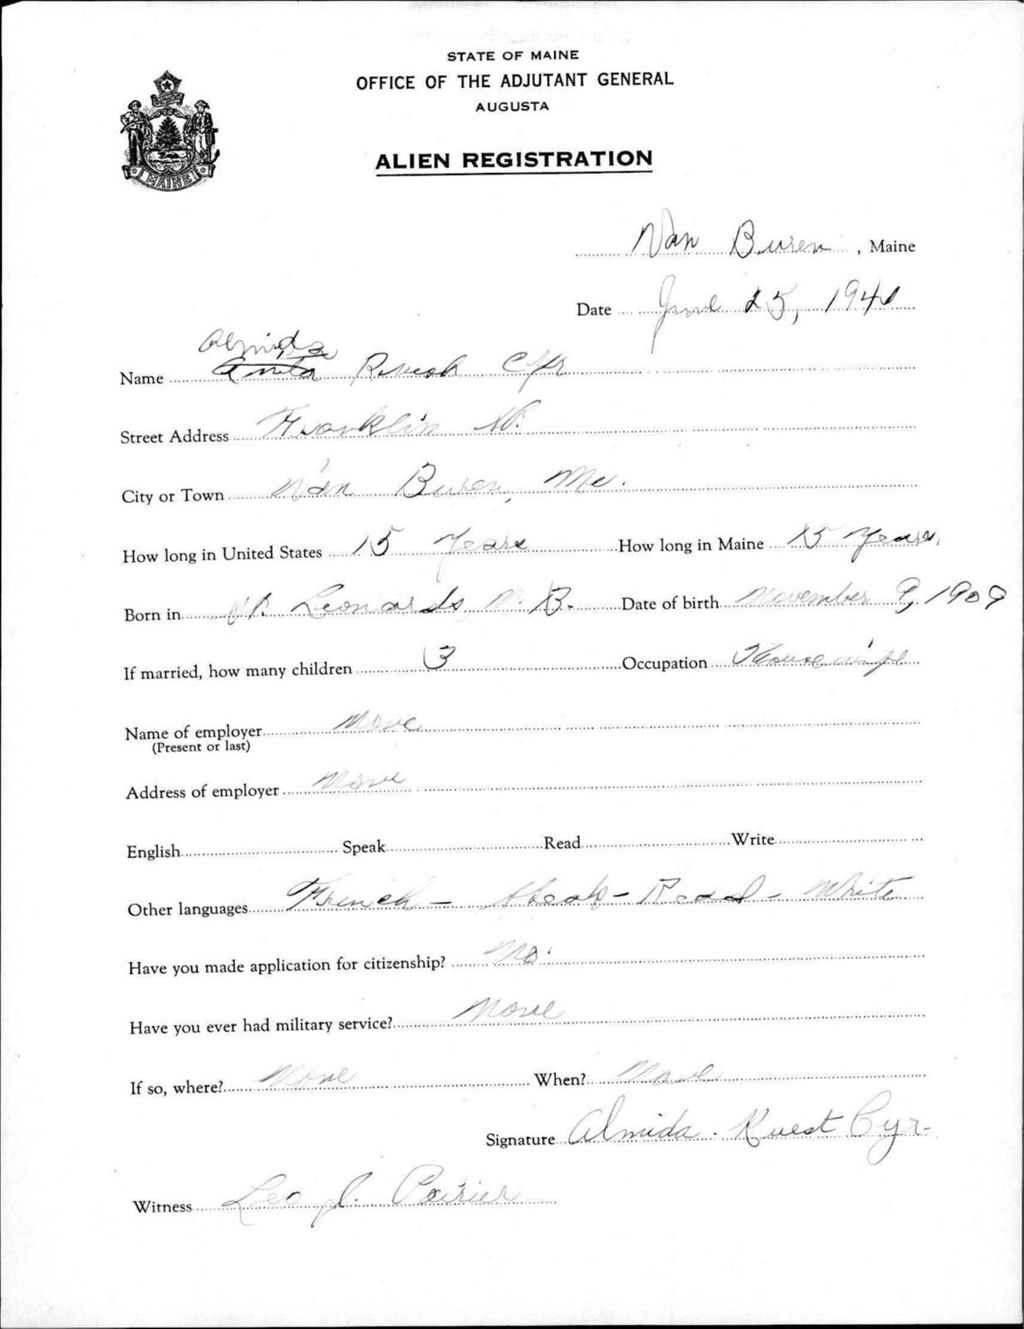 STATE OF MAINE
OFFICE OF THE ADJUTANT GENERAL
AUGUSTA
MAINE
ALIEN REGISTRATION
Van Buren, Maine
Date June 25, 1940
Almida
Name Anita Cyr
Street Address Franklin St.
City or Town Van Buren, Me.
How long in United States 15 Years How long in Maine 15 Years.
Born in St. Leonards, N. B. Date of birth November 9, 1909
If married, how many children 3 Occupation Housewife
Name of employer None
(Present or last)
Address of employer None
English Speak Read Write
Other languages French - Speak - Read - White
Have you made application for citizenship? No.
Have you ever had military service? None
If so, where? None When? None
Signature Almida. Ruest Cyr-
Witness Leo J. Poirier